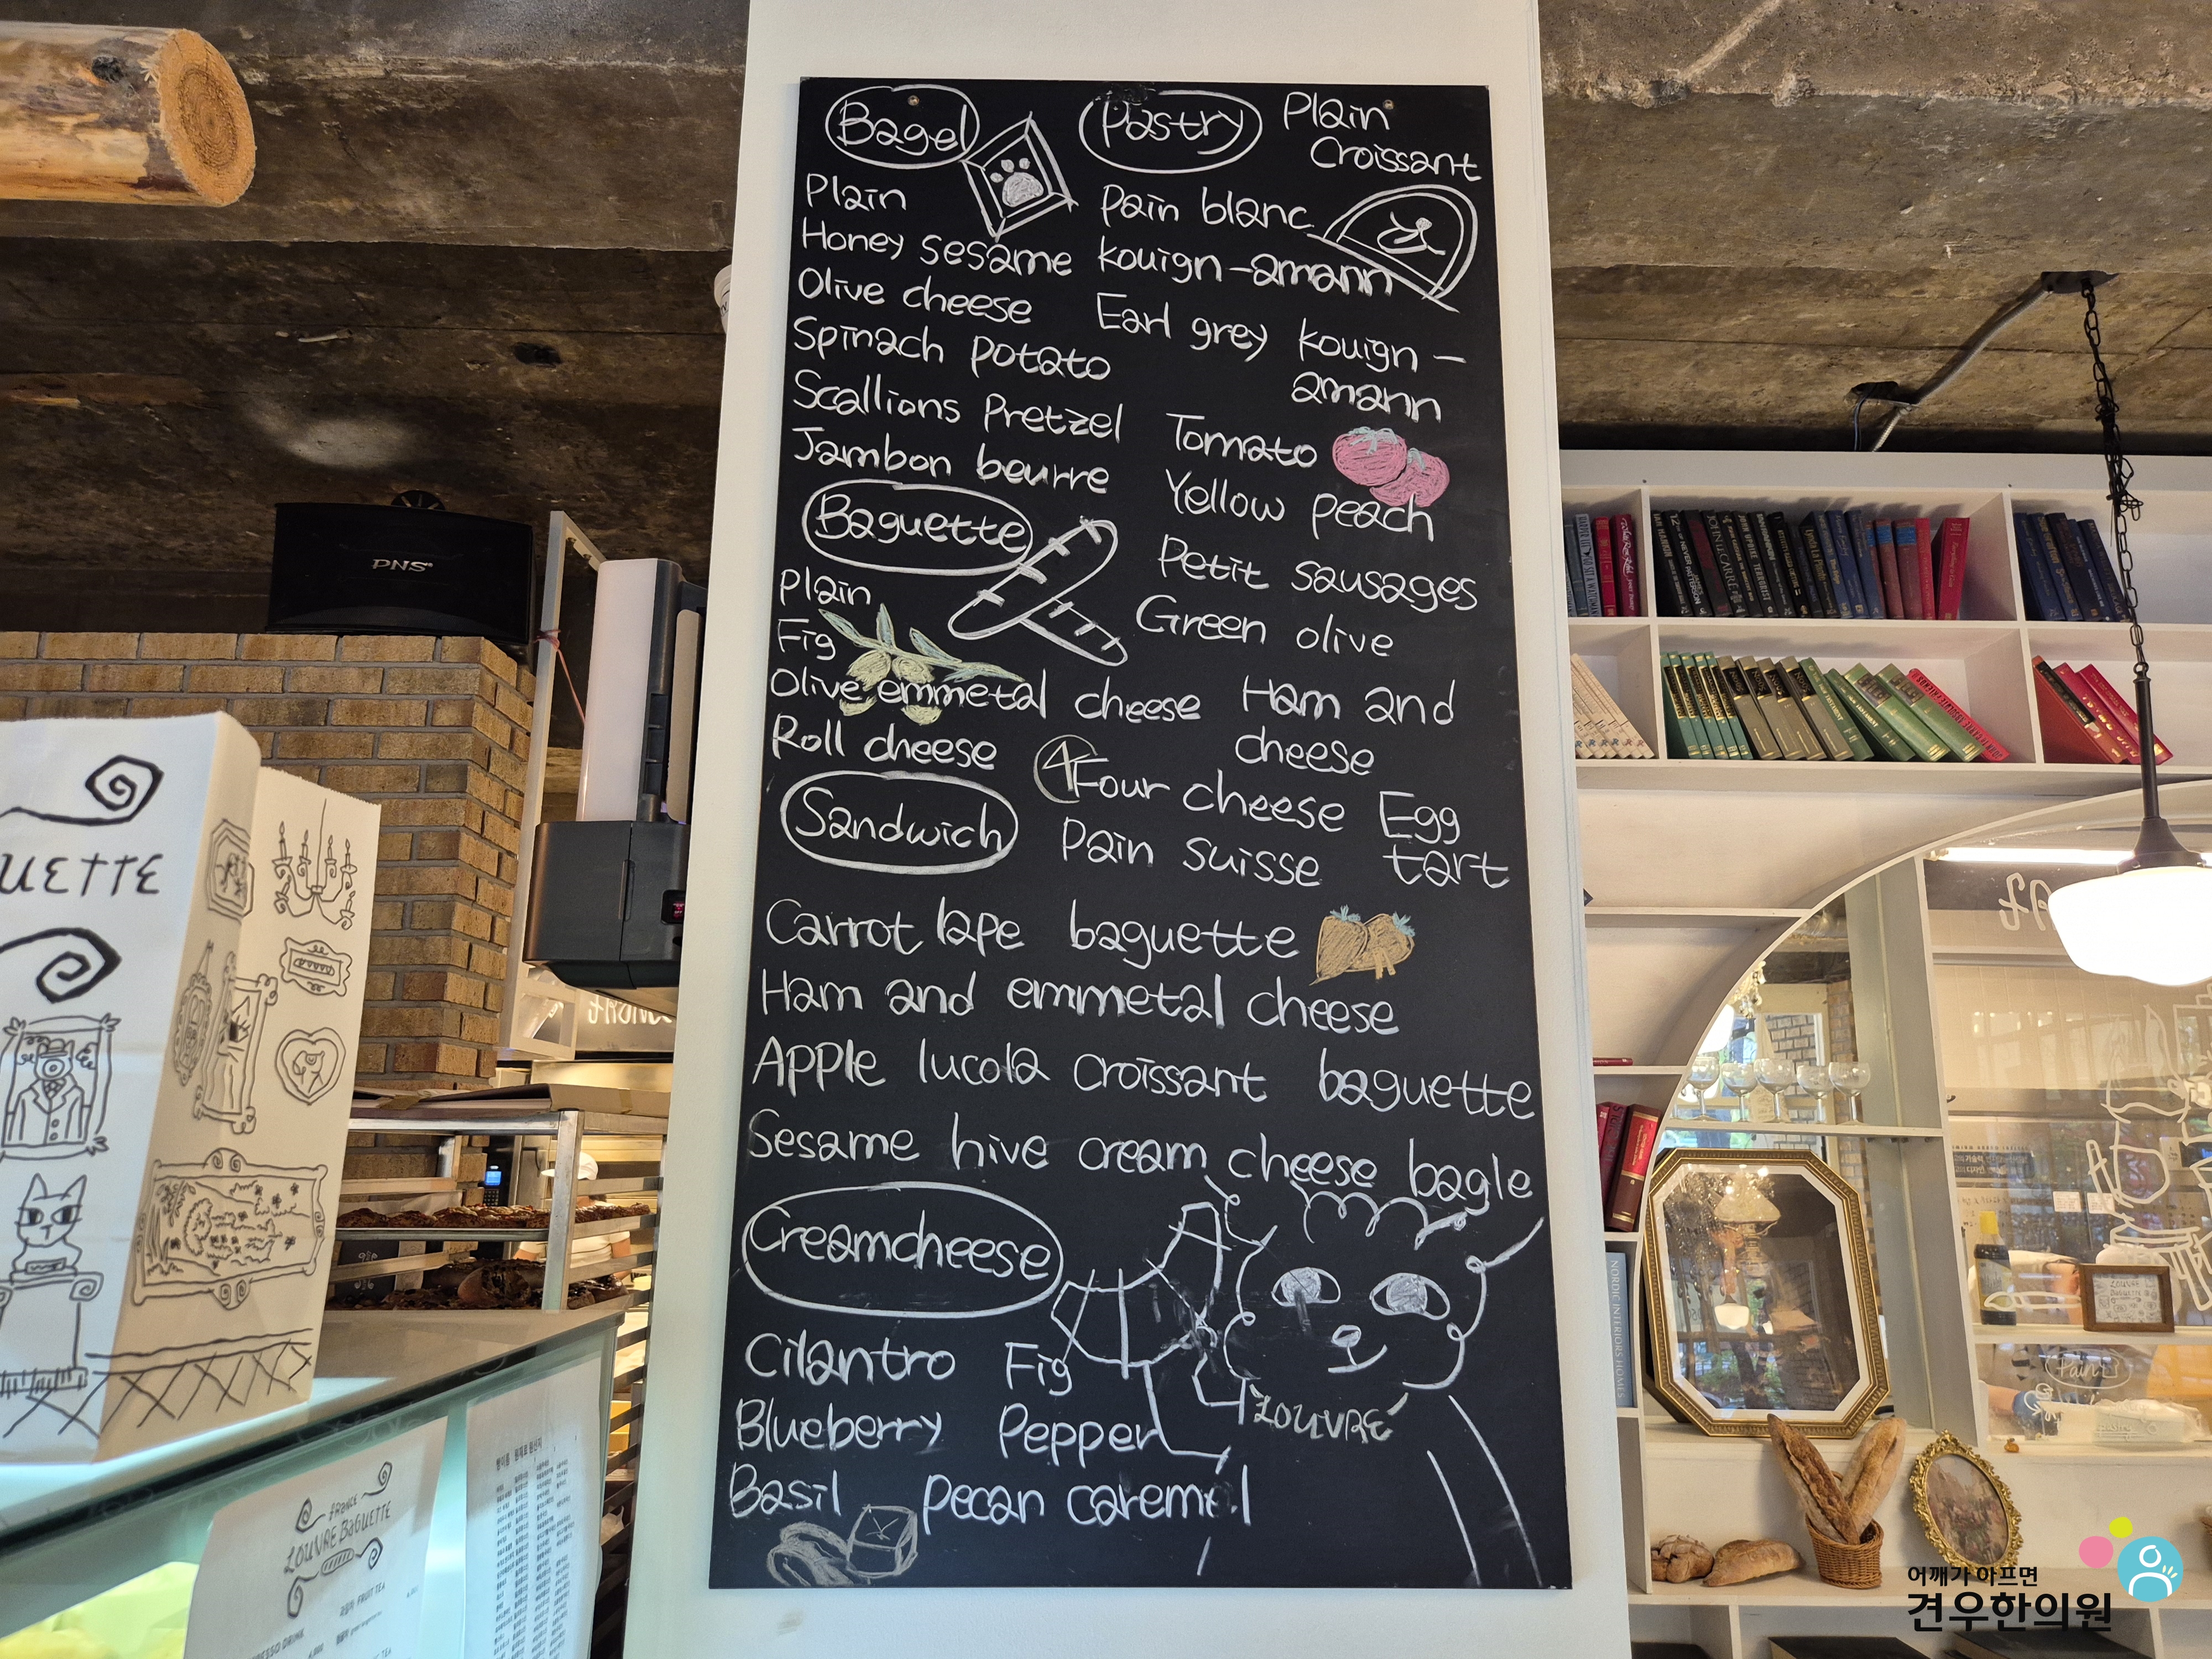 Bagel
Plain
Honey sesame
Olive cheese
Spinach potato
Scallions Pretzel
Jambon beurre
Baguette
Plain
Fig
Olive emmetal cheese
Roll cheese
Pastry
Plain
Croissant
Pain blanc
kouign-amann
Earl grey kouign-
amann
Tomato
Yellow peach
Petit sausages
Green olive
Ham and
cheese
4
Four cheese
Egg
tart
Pain suisse
Sandwich
Carrot lape baguette
Ham and emmetal cheese
Apple lucola croissant baguette
Sesame hive cream cheese bagle
Creamcheese
Cilantro Fig
Blueberry Pepper
Basil Pecan caremel
LOUVRE
PNS
UETTE
FRANCE
LOUVRE BAGUETTE
FRUIT TEA
NORDIC INTERIORS HOMES
Pain
어깨가 아프면
견우한의원